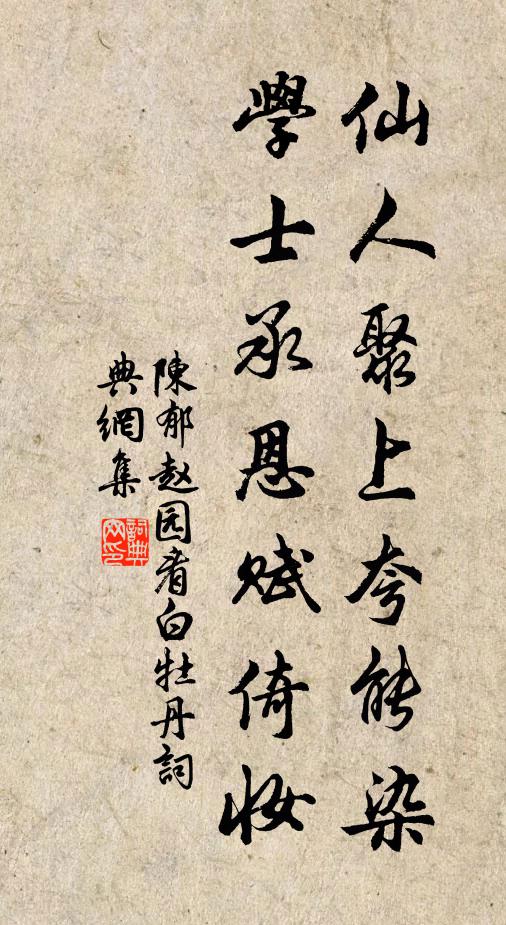 仙人聚上夸能染
學士承恩赋倚妝
陳郁赵园看白牡丹詞
典網集
詞典网印